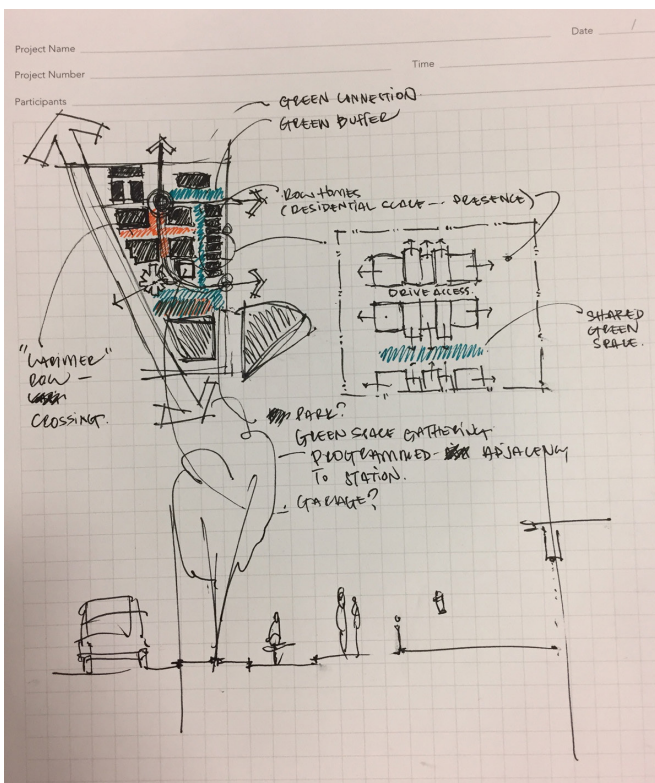 Date
Project Name
Project Number
Time
Participants
GREEN CONNECTION
GREEN BUFFER
ROW HOMES
(RESIDENTIAL SCALE -- PRESENCE)
DRIVE ACCESS.
SHARED
GREEN
SPACE.
"LARIMER"
ROW -
CROSSING.
PARK?
GREEN SPACE GATHERING
PROGRAMMED - ADJACENCY
TO STATION.
GARAGE?